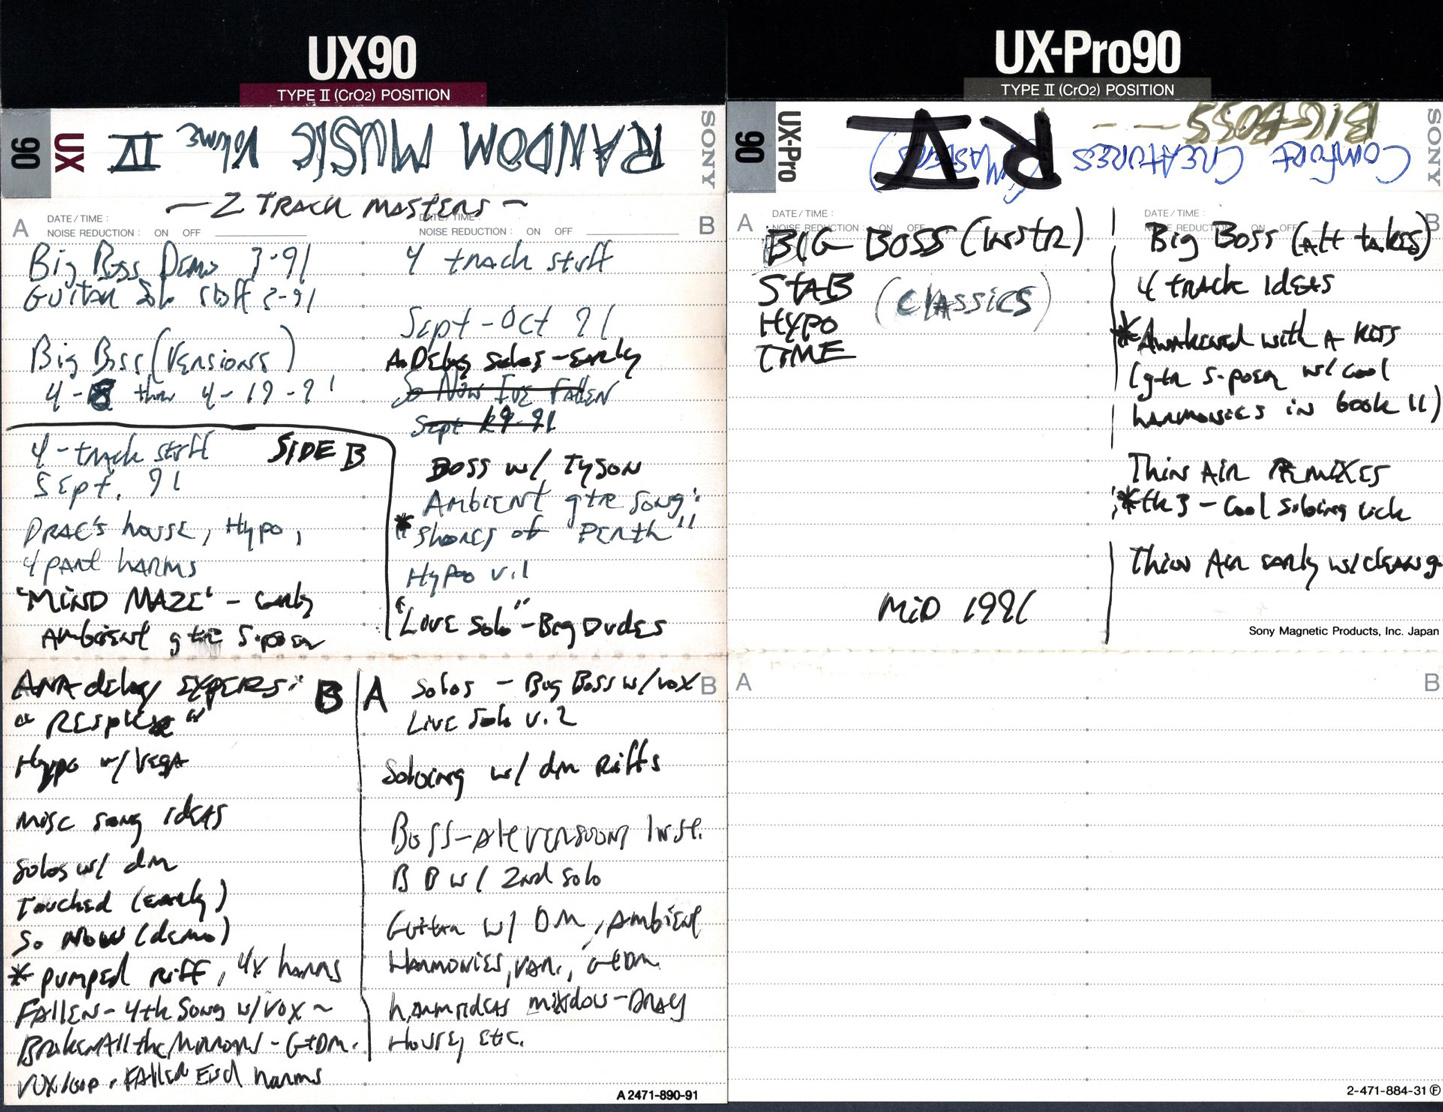 UX90
TYPE II (CrO2) POSITION
90
UX
RANDOM MUSIC Volume IV
SONY
— 2 TRACK MASTERS ~
A
DATE / TIME :
NOISE REDUCTION : ON OFF
DATE / TIME :
NOISE REDUCTION : ON OFF
B
Big Boss Demo 3-91
Guitar Solo stuff 2-91
Big Boss (Versions)
4-8 thru 4-19-91
SIDE B
4-track stuff
Sept. 91
DRAC'S house, Hypo,
4 part harms
"MIND MAZE" - early
Ambient gtr S-poem
4 track stuff
Sept-Oct 91
A.Delay solos - early
So Now I've Fallen
Sept 19-91
BOSS w/ TYSON
Ambient gtr song:
* "Shores of Penth"
Hypoo v.1
"Love Solo" - Big Dudes
ANA delay EXPERS:
B
Hypo w/ Vega
misc song ideas
Solos w/ dm
Touched (early)
So Now (demo)
* pumped riff, 4x harms
FALLEN - 4th Song w/ vox ~
Broken All the Mirrors - GtDm.
vox loop. Fallen End harms
A
Solos - Big Boss w/ vox
B
Live Solo v.2
Soloing w/ dm Riffs
Boss - Alt version Instr.
B B w/ 2nd solo
Guitar w/ DM, Ambient
Harmonies, var., GtDm
harm ideas mixdow -
House, etc.
A 2471-890-91
UX-Pro90
TYPE II (CrO2) POSITION
90
UX-Pro
COMFORT CREATURES (4M MASTERS)
BIG BOSS - - -
R V
SONY
A
DATE / TIME :
NOISE REDUCTION : ON OFF
DATE / TIME :
NOISE REDUCTION : ON OFF
B
BIG BOSS (Instr)
STAB
(Classics)
HYPO
TIME
MID 1991
Big Boss (Alt takes)
4 track Ideas
* Awakened with A Kiss
(gtr s-poem w/ cool
harmonies in book 11)
Thin Air REMIXES
* tk 3 - Cool Soloing lick
Thin Air early w/ clean g
Sony Magnetic Products, Inc. Japan
A
B
2-471-884-31 Ⓕ